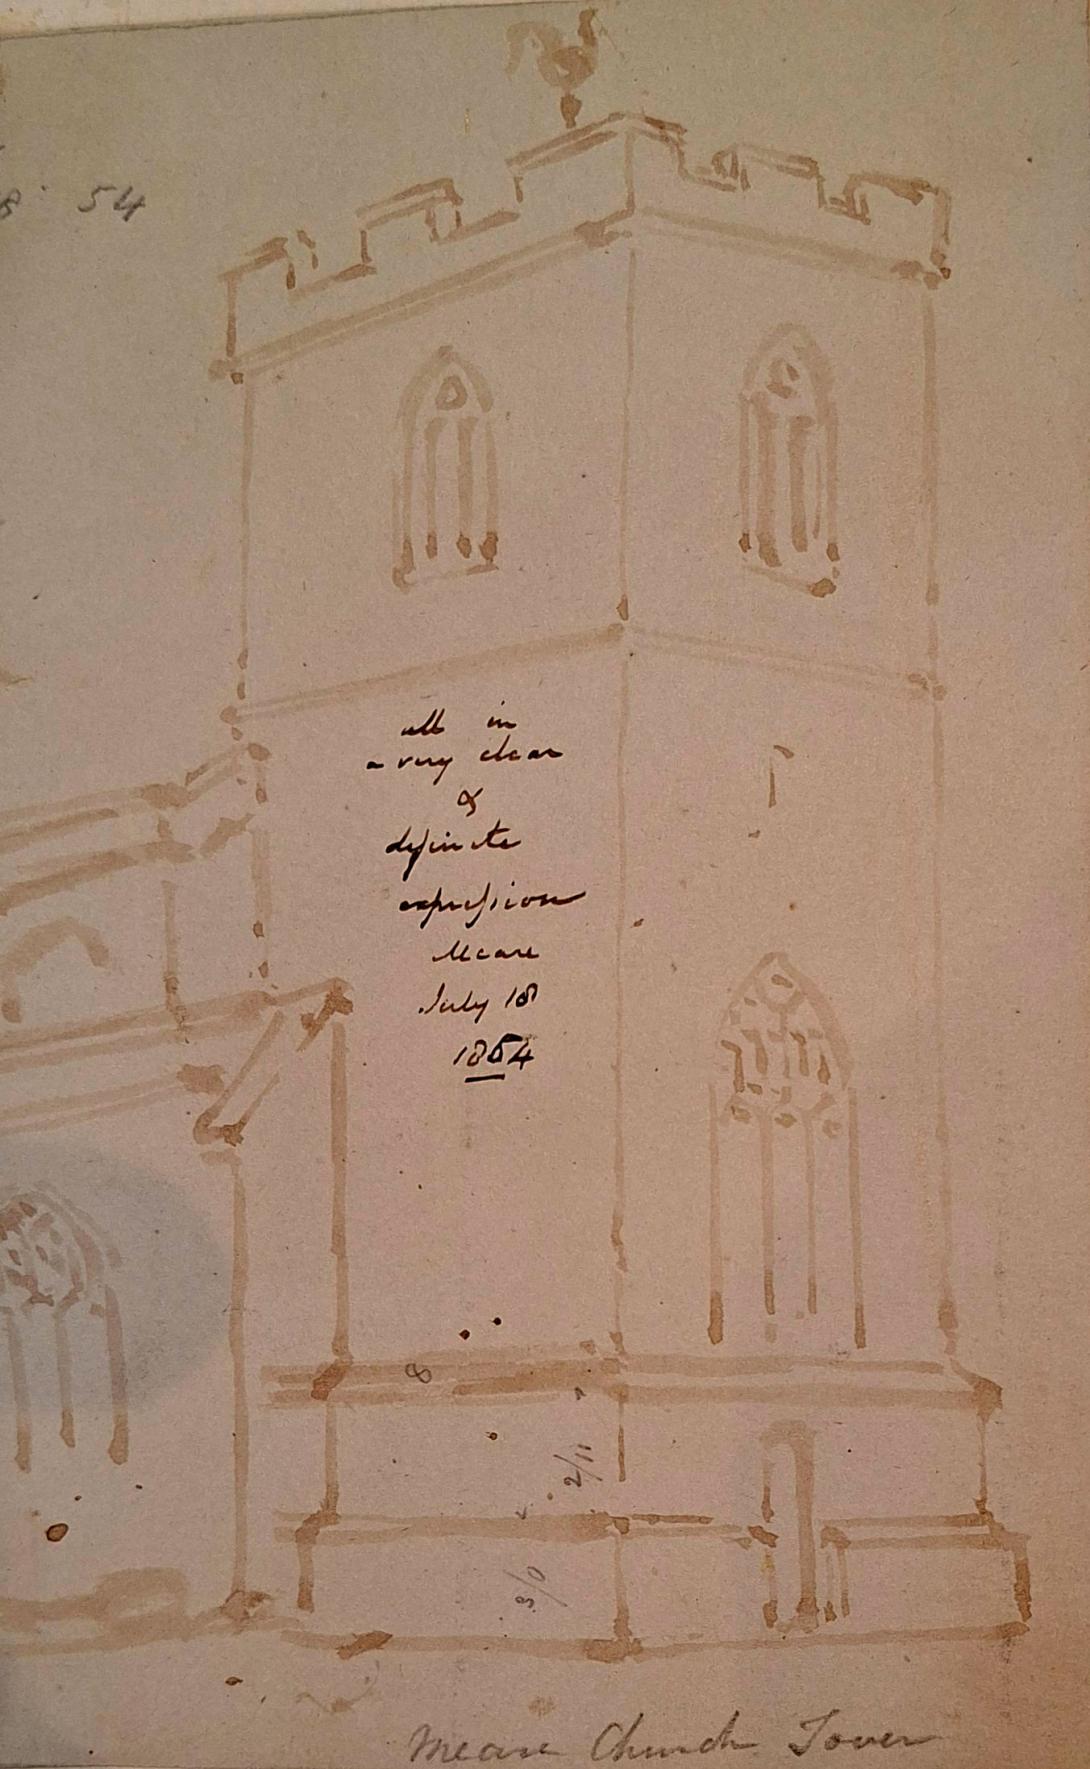 8 54
all in
a very clear
&
definite
expression
Meare
July 18
1854
8
2/11
3/0
Meare Church Tower